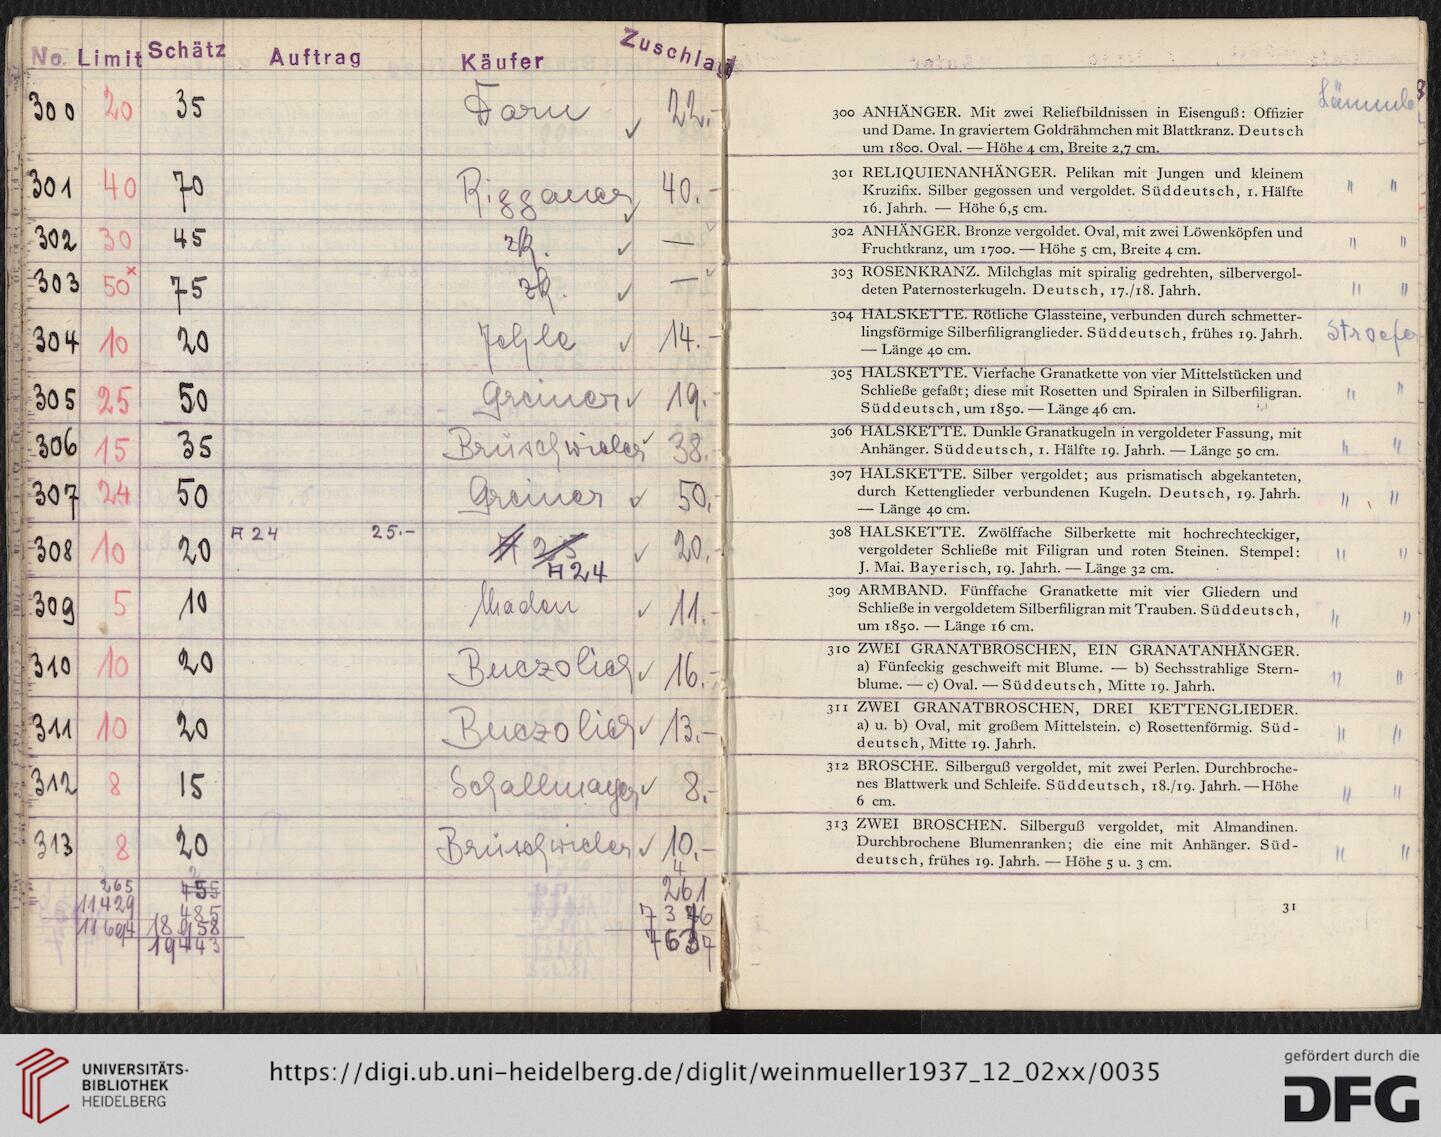 No. Limit Schätz Auftrag Käufer Zuschlag
300 20 35 Darn 22.-
301 40 70 Riggauer 40.-
302 30 45 zk. —
303 50 x 75 zk. —
304 10 20 14.-
305 25 50 Greiner 19.-
306 15 35 Brüschwieler 38.
307 24 50 Greiner 50.
308 10 20 A 24 25.- 20.
A 24
309 5 10 11.-
310 10 20 Buczolich 16.-
311 10 20 Buczolich 13.-
312 8 15 Schallmayer 8.-
313 8 20 Brüschwieler 10.-
265 455 261
11429 485
11694
19443
Lämmle
300 ANHÄNGER. Mit zwei Reliefbildnissen in Eisenguß: Offizier
und Dame. In graviertem Goldrähmchen mit Blattkranz. Deutsch
um 1800. Oval. — Höhe 4 cm, Breite 2,7 cm.
301 RELIQUIENANHÄNGER. Pelikan mit Jungen und kleinem
Kruzifix. Silber gegossen und vergoldet. Süddeutsch, 1. Hälfte " "
16. Jahrh. — Höhe 6,5 cm.
302 ANHÄNGER. Bronze vergoldet. Oval, mit zwei Löwenköpfen und
Fruchtkranz, um 1700. — Höhe 5 cm, Breite 4 cm. " "
303 ROSENKRANZ. Milchglas mit spiralig gedrehten, silbervergol-
deten Paternosterkugeln. Deutsch, 17./18. Jahrh. " "
304 HALSKETTE. Rötliche Glassteine, verbunden durch schmetter-
lingsförmige Silberfiligranglieder. Süddeutsch, frühes 19. Jahrh. Stroefer
— Länge 40 cm.
305 HALSKETTE. Vierfache Granatkette von vier Mittelstücken und
Schließe gefaßt; diese mit Rosetten und Spiralen in Silberfiligran. " "
Süddeutsch, um 1850. — Länge 46 cm.
306 HALSKETTE. Dunkle Granatkugeln in vergoldeter Fassung, mit
Anhänger. Süddeutsch, 1. Hälfte 19. Jahrh. — Länge 50 cm. " "
307 HALSKETTE. Silber vergoldet; aus prismatisch abgekanteten,
durch Kettenglieder verbundenen Kugeln. Deutsch, 19. Jahrh. " "
— Länge 40 cm.
308 HALSKETTE. Zwölffache Silberkette mit hochrechteckiger,
vergoldeter Schließe mit Filigran und roten Steinen. Stempel: " "
J. Mai. Bayerisch, 19. Jahrh. — Länge 32 cm.
309 ARMBAND. Fünffache Granatkette mit vier Gliedern und
Schließe in vergoldetem Silberfiligran mit Trauben. Süddeutsch, " "
um 1850. — Länge 16 cm.
310 ZWEI GRANATBROSCHEN, EIN GRANATANHÄNGER.
a) Fünfeckig geschweift mit Blume. — b) Sechsstrahlige Stern- " "
blume. — c) Oval. — Süddeutsch, Mitte 19. Jahrh.
311 ZWEI GRANATBROSCHEN, DREI KETTENGLIEDER.
a) u. b) Oval, mit großem Mittelstein. c) Rosettenförmig. Süd- " "
deutsch, Mitte 19. Jahrh.
312 BROSCHE. Silberguß vergoldet, mit zwei Perlen. Durchbroche-
nes Blattwerk und Schleife. Süddeutsch, 18./19. Jahrh. — Höhe " "
6 cm.
313 ZWEI BROSCHEN. Silberguß vergoldet, mit Almandinen.
Durchbrochene Blumenranken; die eine mit Anhänger. Süd- " "
deutsch, frühes 19. Jahrh. — Höhe 5 u. 3 cm.
31
UNIVERSITÄTS-
BIBLIOTHEK
HEIDELBERG
https://digi.ub.uni-heidelberg.de/diglit/weinmueller1937_12_02xx/0035
gefördert durch die
DFG